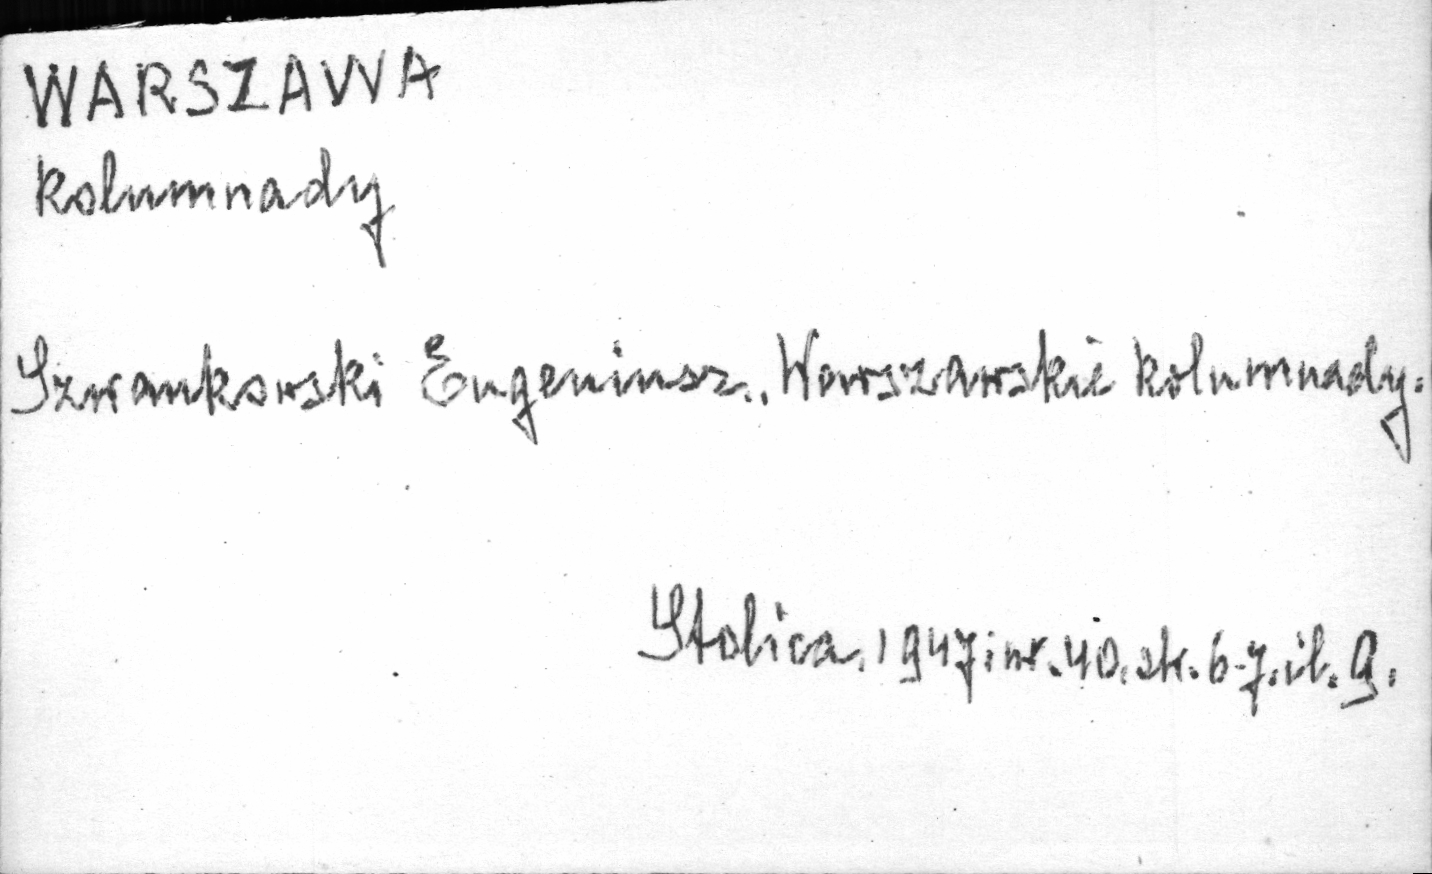 WARSZAWA
kolumnady
Szwankowski Eugeniusz., Warszawskie kolumnady.
Stolica, 1947; nr. 40. str. 6-7. il. 9.